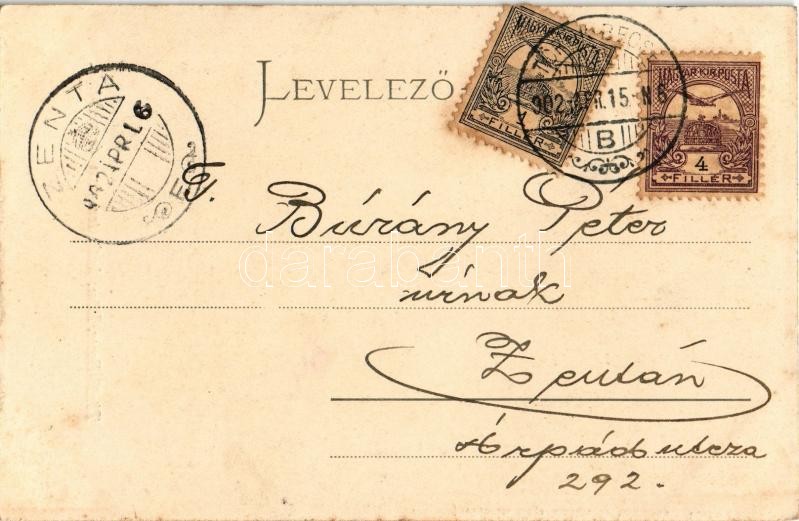 LEVELEZŐ-
MAGYAR KIR. POSTA
1
FILLÉR
MAGYAR KIR. POSTA
4
FILLÉR
902 APR. 15. N 6
B
ZENTA
902 APR 16
Búrány Peter
úrnak
Zentán
Árpád utcza
292.
darabanth